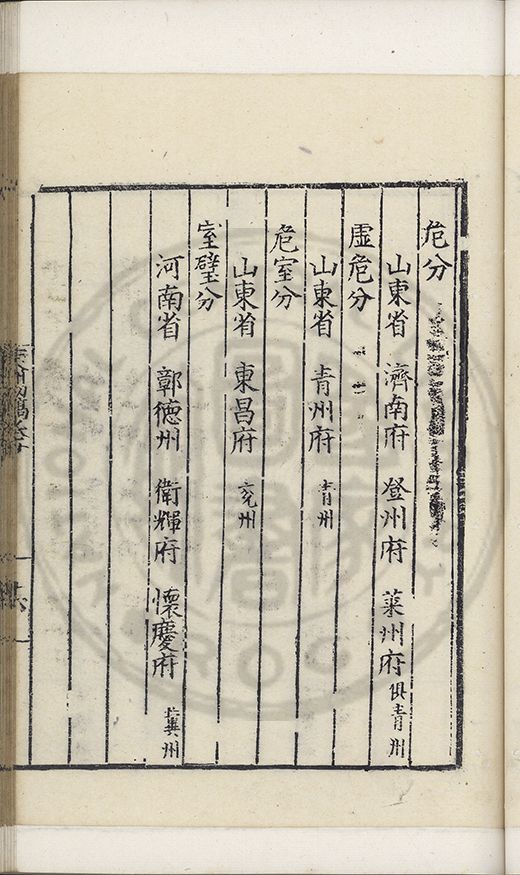 危分
山東省 濟南府 登州府 萊州府 俱青州
虛危分
山東省 青州府 青州
危室分
山東省 東昌府 兗州
室壁分
河南省 彰德州 衛輝府 懷慶府 冀州